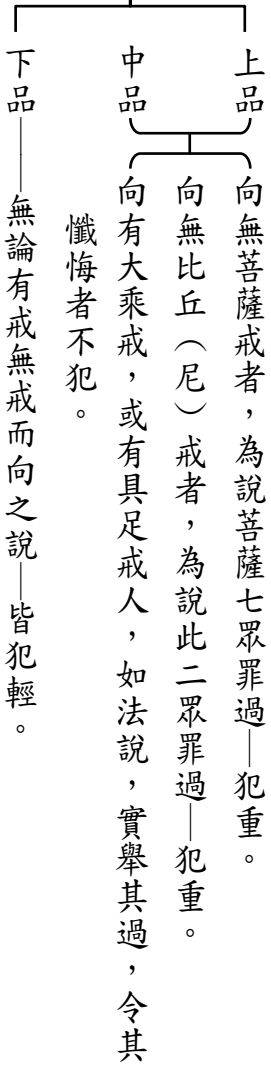 上品
中品
向無菩薩戒者，為說菩薩七眾罪過—犯重。
向無比丘（尼）戒者，為說此二眾罪過—犯重。
向有大乘戒，或有具足戒人，如法說，實舉其過，令其
懺悔者不犯。
下品——無論有戒無戒而向之說—皆犯輕。